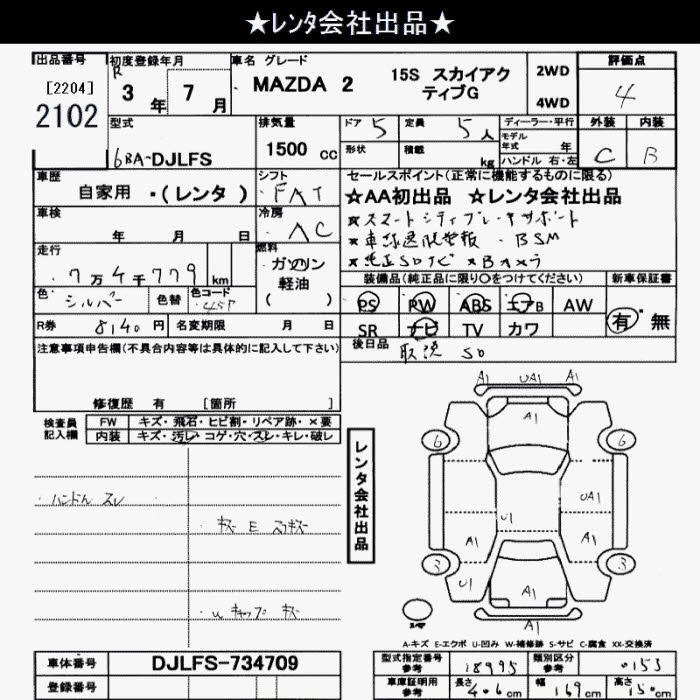 ★レンタ会社出品★
出品番号
[2204]
2102
初度登録年月
R 3 年 7 月
車名 グレード
MAZDA 2
15S スカイアクティブG
2WD
4WD
評価点
4
外装 内装
C B
型式
6BA-DJLFS
排気量
1500 cc
ドア 5
定員 5人
形状
積載 kg
ディーラー・平行
モデル年式 年
ハンドル 右・左
車歴
自家用 ・(レンタ)
シフト
FAT
車検
年 月 日
冷房
AC
セールスポイント(正常に機能するものに限る)
★AA初出品 ★レンタ会社出品
・スマートシティブレーキサポート
・車線逸脱警報 ・BSM
・純正SDナビ ×Bカメラ
走行
7万4千779 km
燃料
ガソリン
軽油
( )
色
シルバー
色替
色コード
45P
装備品(純正品に限り○をつけてください)
PS PW ABS エアB AW
SR ナビ TV カワ
新車保証書
有・無
R券 8140 円
名変期限 月 日
後日品
取説 SD
注意事項申告欄(不具合内容等は具体的に記入して下さい)
修復歴 有 [箇所 ]
検査員記入欄
FW キズ・飛石・ヒビ割・リペア跡・×要
内装 キズ・汚レ・コゲ・穴・スレ・キレ・破レ
・ハンドル スレ
キズ E スリキズ
キャップ キズ
レンタ会社出品
A1 UA1 A1
A1
6 6
UA1
U1
A1 A1
3 3
U1
A1
A1
A-キズ E-エクボ U-凹み W-補修跡 S-サビ C-腐食 XX-交換済
車体番号
DJLFS-734709
登録番号
型式指定番号
参考
18995
類別区分
参考
0153
車庫証明用
参考
長さ 406 cm
幅 169 cm
高さ 150 cm